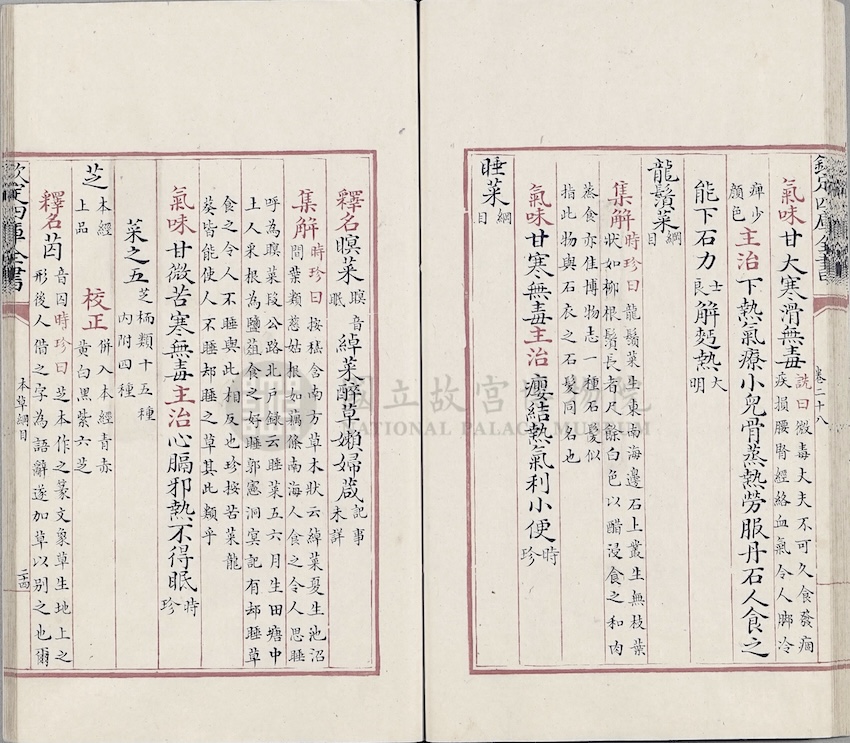 欽定四庫全書
卷二十八
氣味甘大寒滑無毒詵曰微毒丈夫不可久食發痼疾損腰腎經絡血氣令人脚冷
痺少顏色主治下熱氣療小兒骨蒸熱勞服丹石人食之
能下石力士良解麪熱大明
龍鬚菜綱目
集解時珍曰龍鬚菜生東南海邊石上叢生無枝葉狀如柳根鬚長者尺餘白色以醋浸食之和肉
蒸食亦佳博物志一種石髮似指此物與石衣之石髮同名也
氣味甘寒無毒主治癭結熱氣利小便時珍
睡菜綱目
釋名瞑菜瞑音眠綽菜醉草嬾婦葴記事未詳
集解時珍曰按嵇含南方草木狀云綽菜夏生池沼間葉類慈姑根如藕條南海人食之令人思睡
呼為瞑菜段公路北戶録云睡菜五六月生田塘中土人采根為鹽葅食之好睡郭憲洞冥記有却睡草
食之令人不睡與此相反也珍按苦菜龍葵皆能使人不睡却睡之草其此類乎
氣味甘微苦寒無毒主治心膈邪熱不得眠時珍
菜之五芝栭類十五種内附四種
芝本經上品校正併入本經青赤黄白黑紫六芝
釋名苬音囚時珍曰芝本作之篆文象草生地上之形後人借之字為語辭遂加草以别之也爾
欽定四庫全書
本草綱目
二十四
國立故宮博物院
NATIONAL PALACE MUSEUM